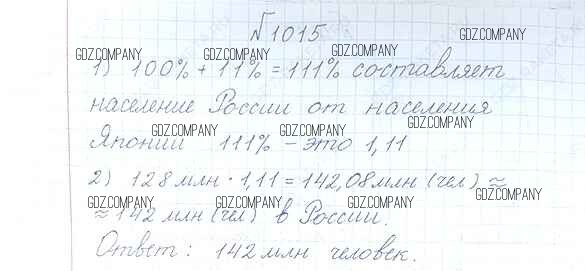 №1015
GDZ.COMPANY
GDZ.COMPANY GDZ.COMPANY GDZ.COMPANY
1) 100% + 11% = 111% составляет
население России от населения
GDZ.COMPANY GDZ.COMPANY GDZ.COMPANY
Японии 111% – это 1,11
2) 128 млн · 1,11 = 142,08 млн (чел) ≈
GDZ.COMPANY GDZ.COMPANY GDZ.COMPANY GDZ.COMPANY
≈ 142 млн (чел) в России.
Ответ: 142 млн человек.